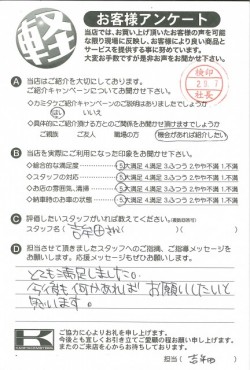 軽
お客様アンケート
当店では、お買い上げ頂いたお客様の声を可能
な限り現場に反映し、お客様により良い商品と
サービスを提供する事に努めています。
大変お手数ですが是非お声をお聞かせ下さい。
検印
社長
A 当店はご紹介を大切にしております。
ご紹介キャンペーンについてお聞かせ下さい。
・カミタケご紹介キャンペーンのご説明はありましたでしょうか
はい いいえ
・具体的にご紹介頂ける方とのご関係をお聞かせ頂けますでしょうか
ご親族 ご友人 職場の方 機会があれば紹介したい
B 当店を実際にご利用になった印象をお聞かせ下さい。
◇総合的な満足度 5.大満足 4.満足 3.ふつう 2.やや不満 1.不満
◇スタッフの対応 5.大満足 4.満足 3.ふつう 2.やや不満 1.不満
◇お店の雰囲気、清掃 5.大満足 4.満足 3.ふつう 2.やや不満 1.不満
◇納車時のお車の状態 5.大満足 4.満足 3.ふつう 2.やや不満 1.不満
C 評価したいスタッフがいれば教えてください。(複数回答可)
スタッフ名( 吉田さん )( )
D 担当させて頂きましたスタッフへのご指摘、ご指導メッセージを
お願いします。応援メッセージもぜひお願いします。
とても満足しました。
今後も何かあれば お願いしたいと
思います。
ご協力に心よりお礼を申し上げます。
今後とも宜しくお引き立てご愛顧の程お願い申し上げます。
またのご来店を心からお待ちしております。
担当( 吉田 )